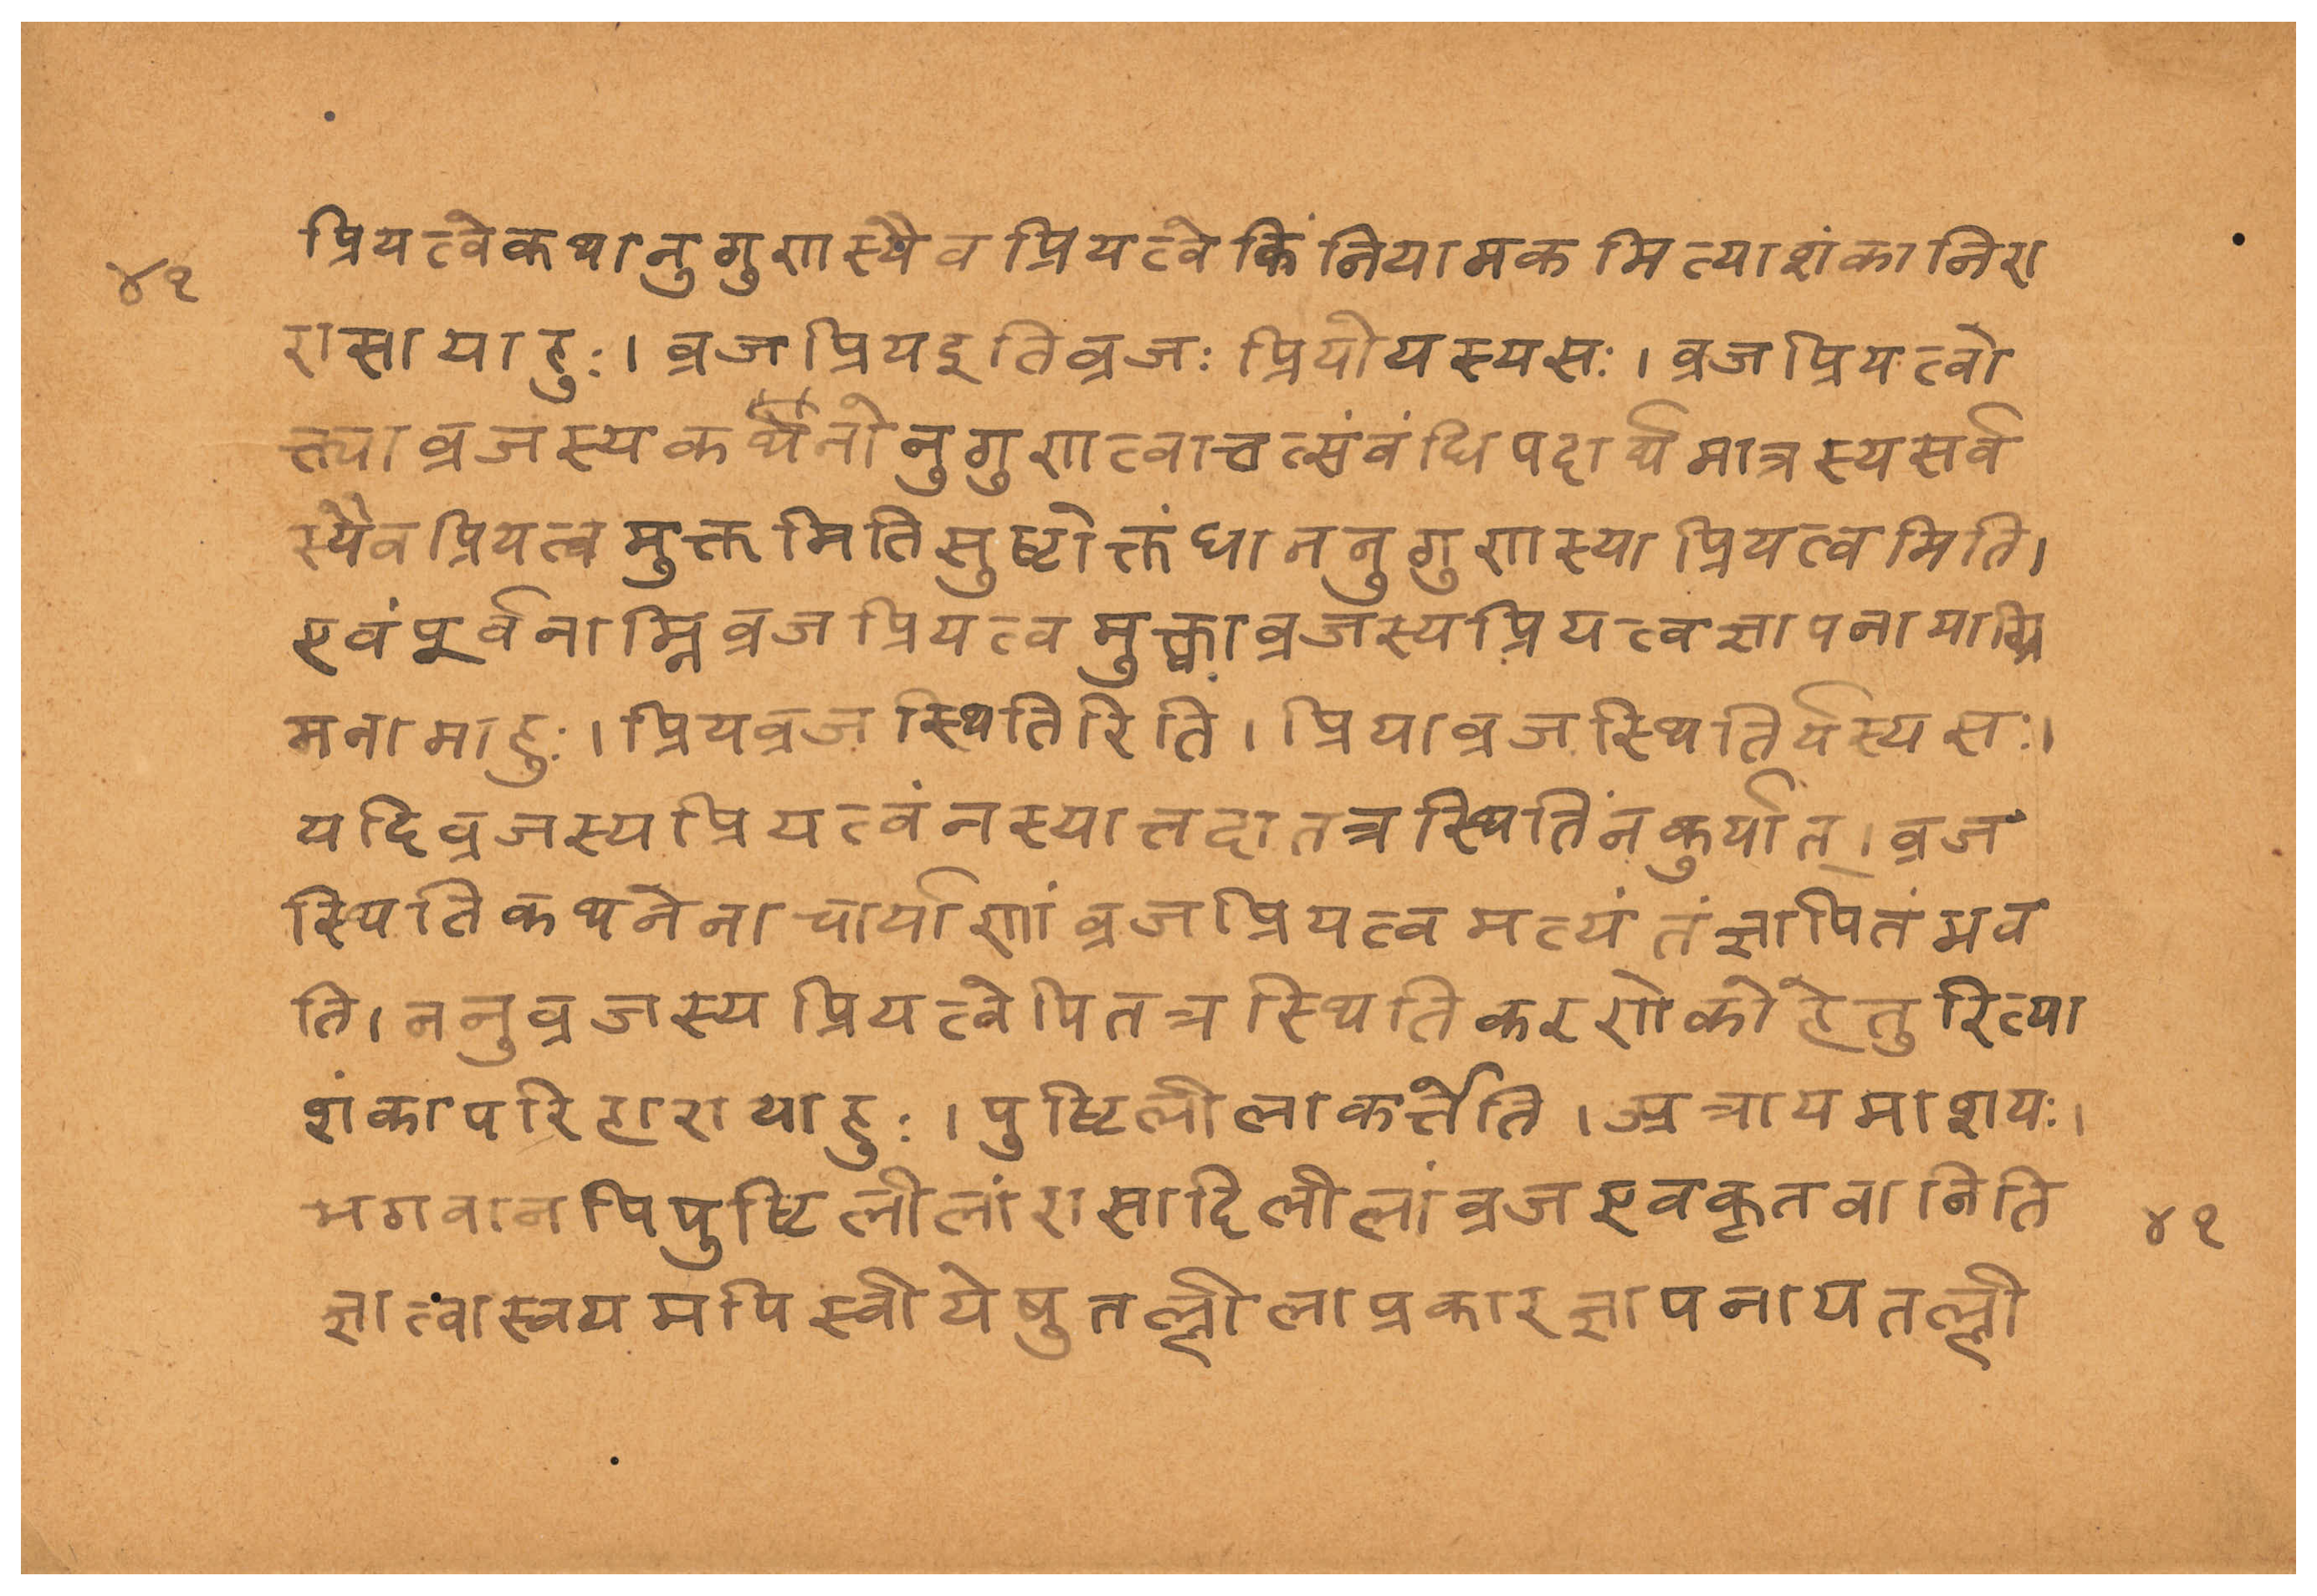 प्रियत्वेकथानुगुणस्यैवप्रियत्वेकिंनियामकमित्याशंकानिरा
४१
रासायाहुः। व्रजप्रियइतिव्रजः प्रियोयस्यसः। व्रजप्रियत्वो
त्त्याव्रजस्यकर्थनोनुगुणत्वात्तत्संवंधिपदार्थमात्रस्यसर्व
स्यैवप्रियत्वमुक्तमितिसुष्टोक्तंधाननुगुणस्याप्रियत्वमिति।
एवंपूर्वनाम्निव्रजप्रियत्वमुक्त्वाव्रजस्यप्रियत्वज्ञापनायाग्रि
मनामाहुः। प्रियव्रजस्थितिरिति। प्रियाव्रजस्थितिर्यस्यसः।
यदिव्रजस्यप्रियत्वंनस्यात्तदातत्रस्थितिंनकुर्यात्। व्रज
स्थितिकथनेनाचार्याणांव्रजप्रियत्वमत्यंतंज्ञापितंभव
ति। ननुव्रजस्यप्रियत्वेपितत्रस्थितिकरणेकोहेतुरित्या
शंकापरिहारायाहुः। पुष्टिलीलाकर्त्तेति। अत्रायमाशयः।
भगवानपिपुष्टिलीलांरासादिलीलांव्रजएवकृतवानिति
४१
ज्ञात्वास्वयमपिस्वीयेषुतल्लीलाप्रकारज्ञापनायतल्ली